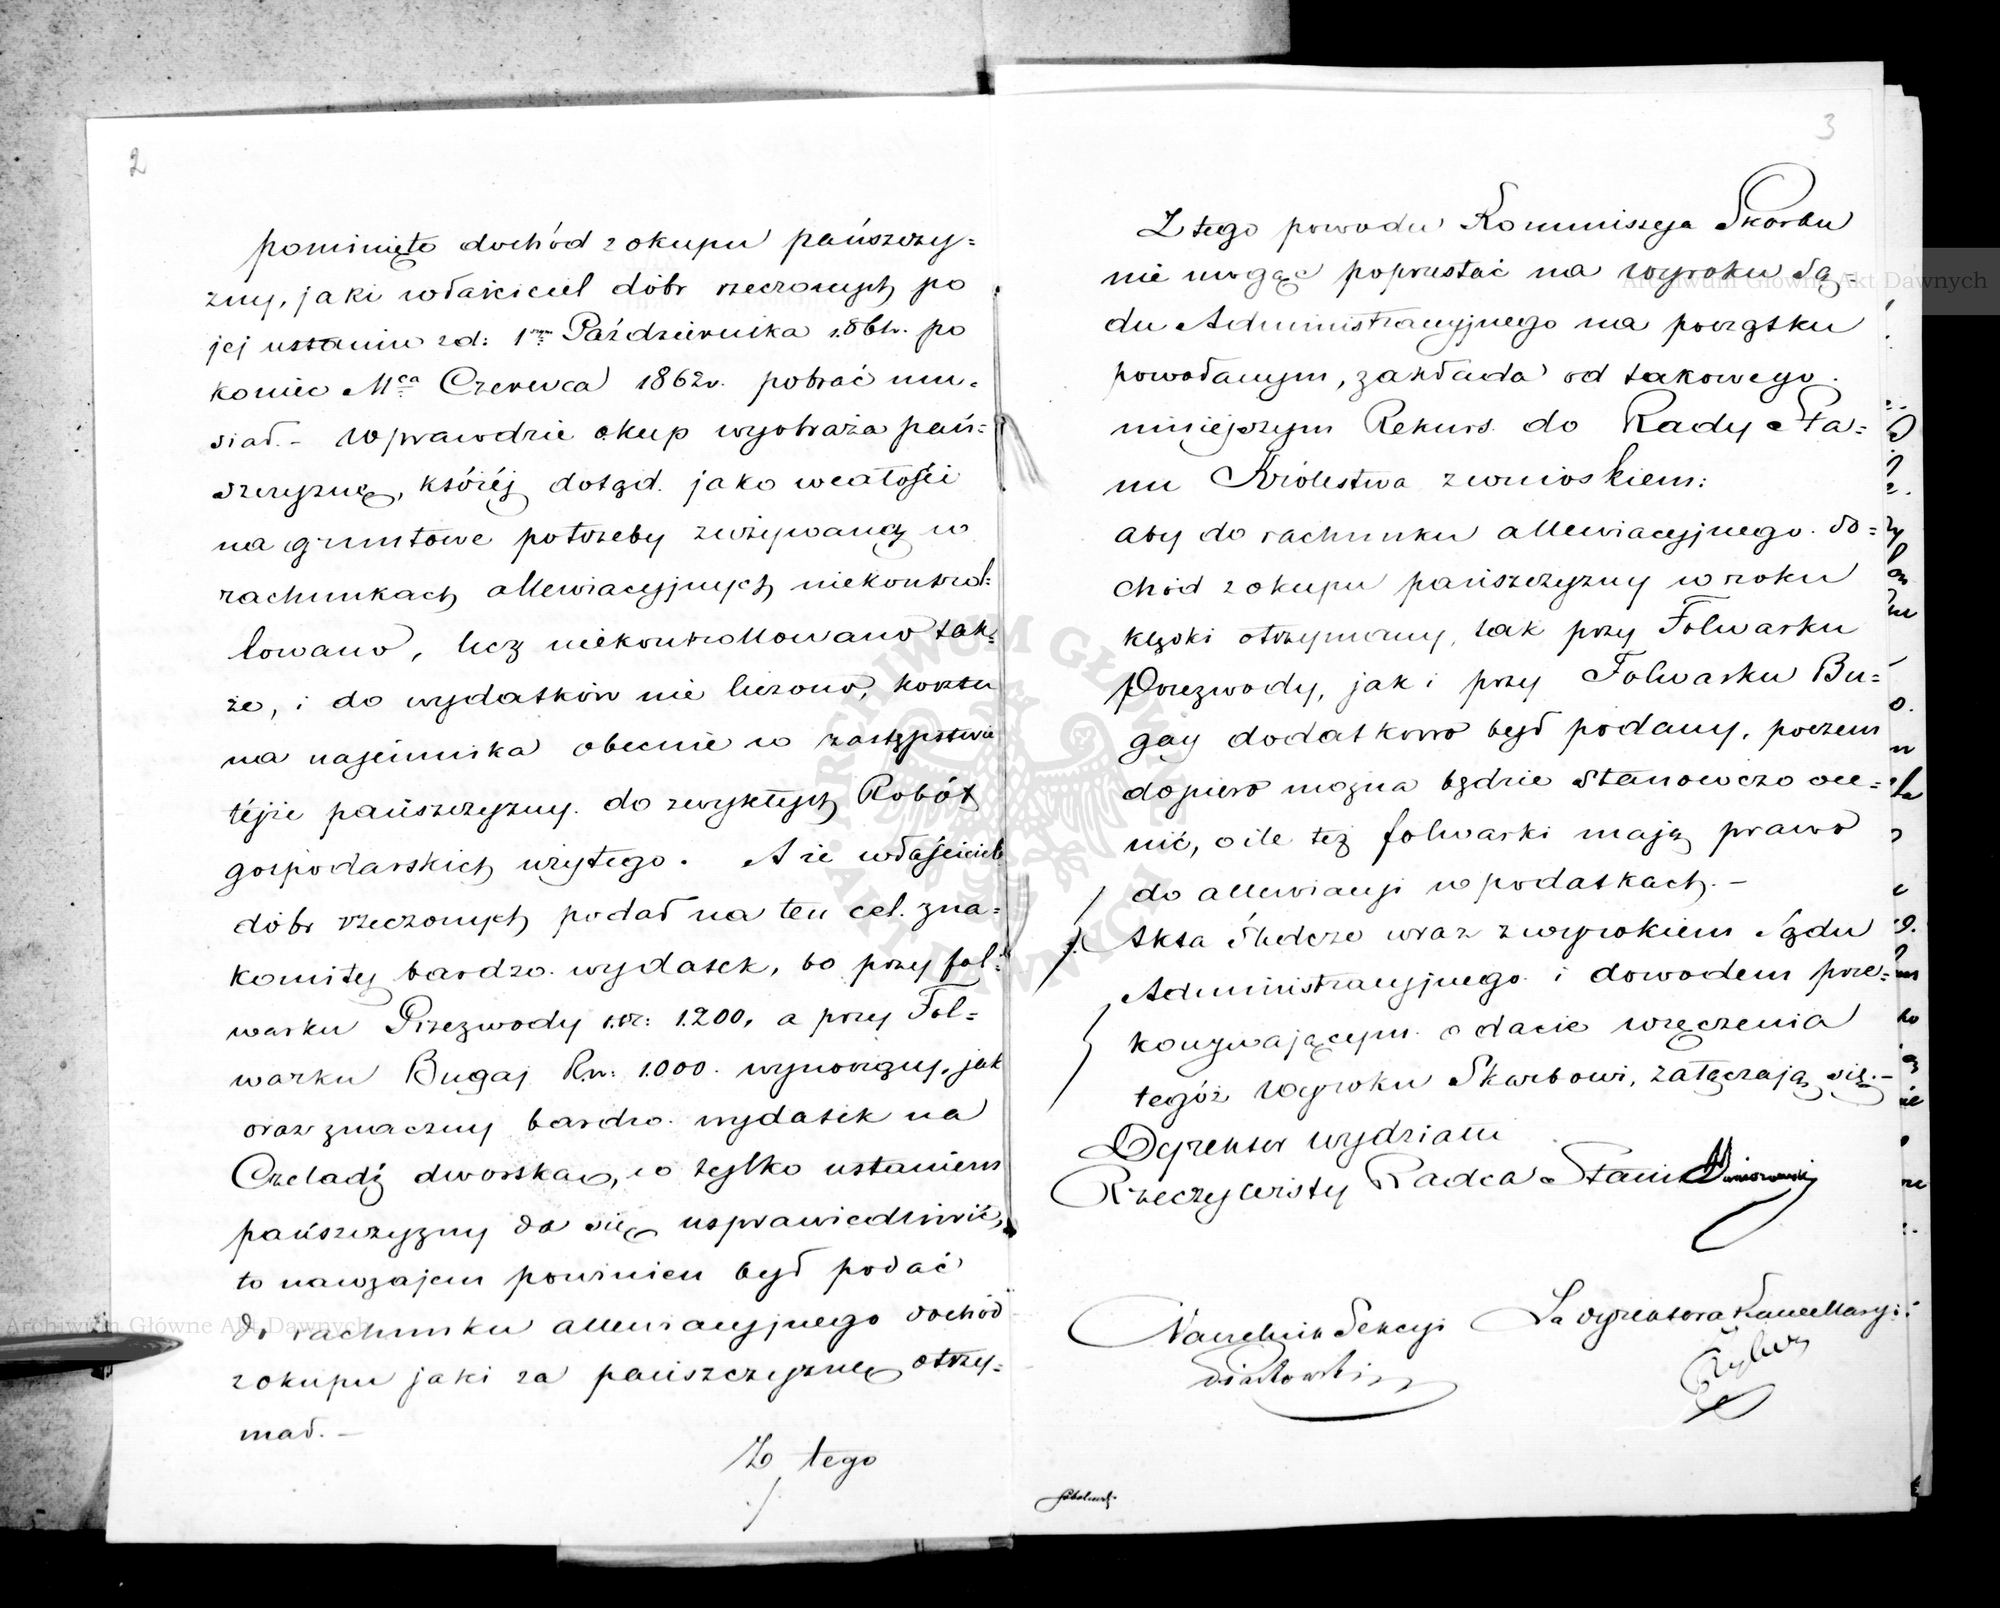 2
pominięto dochód z okupu pańszczy=
zny, jaki właściciel dóbr rzeczonych po
jej ustaniu zd: 1 Października 1861r. po
koniec Mca Czerwca 1862r. pobrać mu=
siał. – Wprawdzie okup wyobraża pań=
szczyznę, któréj dotąd jako w całości
na gruntowe potrzeby zużywanéj w
rachunkach allewiacyjnych niekontrol=
lowano, lecz niekontrollowano tak=
że, i do wydatków nie liczono, kosztu
na najemnika obecnie w zastępstwie
téjże pańszczyzny do zwykłych Robót
gospodarskich użytego. A że właściciel
dóbr rzeczonych podał na ten cel zna=
komity bardzo wydatek, bo przy fol=
warku Przezwody rsr: 1200, a przy Fol=
warku Bugaj Rsr: 1000. wynoszący, jak
oraz znaczny bardzo wydatek na
Czeladź dworską, co tylko ustaniem
pańszczyzny da się usprawiedliwić,
to nawzajem powinien był podać
do rachunku allewiacyjnego dochód
z okupu jaki za pańszczyznę otrzy=
mał. –
Z tego
3
Z tego powodu Kommissya Skarbu
nie mogąc poprzestać na wyroku Są=
du Administracyjnego na początku
powołanym, zakłada od takowego
niniejszym Rekurs do Rady Sta=
nu Królestwa z wnioskiem:
aby do rachunku allewiacyjnego do=
chód z okupu pańszczyzny w roku
klęski otrzymany, tak przy Folwarku
Przezwody, jak i przy Folwarku Bu=
gaj dodatkowo był podany, poczem
dopiero można będzie stanowczo oce=
nić, o ile też folwarki mają prawo
do allewiacyi w podatkach. –
Akta śledcze wraz z wyrokiem Sądu
Administracyjnego i dowodem prze=
konywającym o dacie wręczenia
tegoż Wyroku Skarbowi, załączają się. –
Dyrektor Wydziału
Rzeczywisty Radca Stanu
Naczelnik Sekcyi
Za Dyrektora Kancellaryi